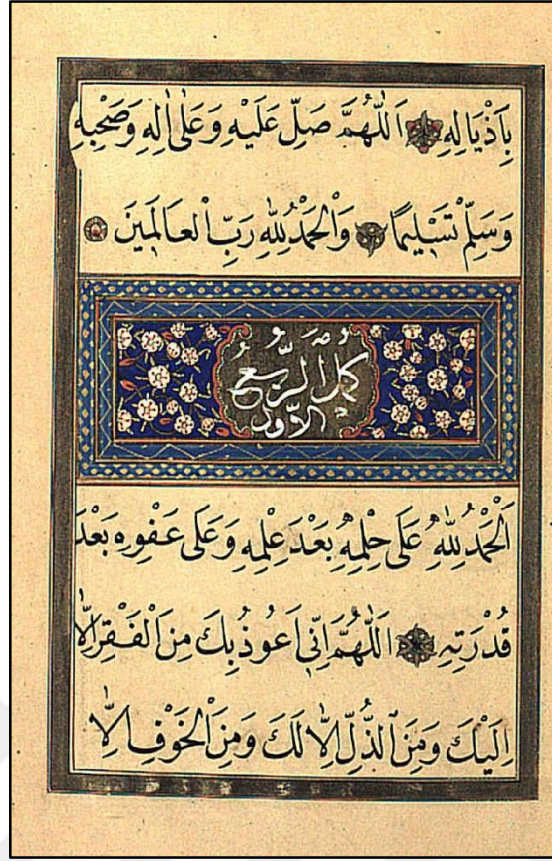 بِاَذْيَالِهِ اَللّٰهُمَّ صَلِّ عَلَيْهِ وَعَلٰى اٰلِهِ وَصَحْبِهِ
وَسَلِّمْ تَسْلِيمًا وَالْحَمْدُ لِلّٰهِ رَبِّ الْعَالَمِينَ
كَمُلَ الرُّبْعُ
الْاَوَّلُ
اَلْحَمْدُ لِلّٰهِ عَلٰى حِلْمِهِ بَعْدَ عِلْمِهِ وَعَلٰى عَفْوِهِ بَعْدَ
قُدْرَتِهِ اَللّٰهُمَّ اِنِّي اَعُوذُ بِكَ مِنَ الْفَقْرِ اِلَّا
اِلَيْكَ وَمِنَ الذُّلِّ اِلَّا لَكَ وَمِنَ الْخَوْفِ اِلَّا